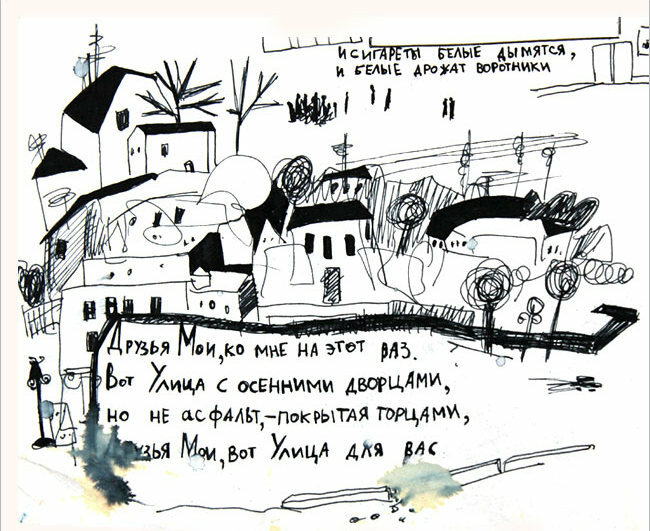 И СИГАРЕТЫ БЕЛЫЕ ДЫМЯТСЯ,
И БЕЛЫЕ ДРОЖАТ ВОРОТНИКИ
ДРУЗЬЯ МОИ, КО МНЕ НА ЭТОТ РАЗ.
ВОТ УЛИЦА С ОСЕННИМИ ДВОРЦАМИ,
НО НЕ АСФАЛЬТ,-ПОКРЫТАЯ ТОРЦАМИ,
ДРУЗЬЯ МОИ, ВОТ УЛИЦА ДЛЯ ВАС